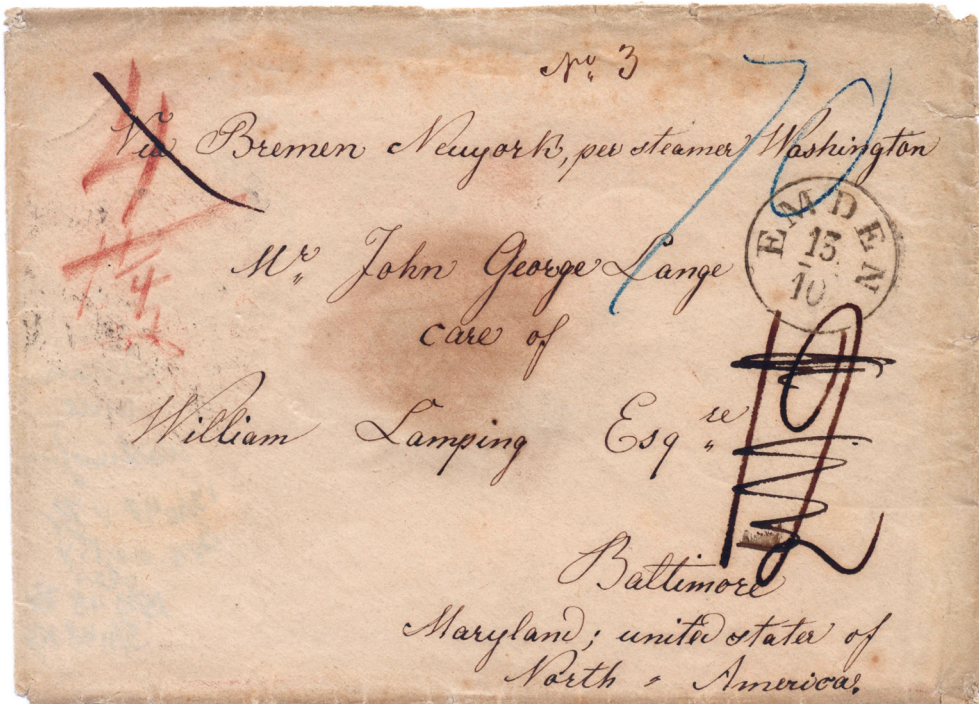 No 3
Via Bremen Newyork, per steamer Washington
Mr John George Lange
care of
William Lamping Esqre
Baltimore
Maryland; united states of
North - America.
EMDEN
15
10
70
4